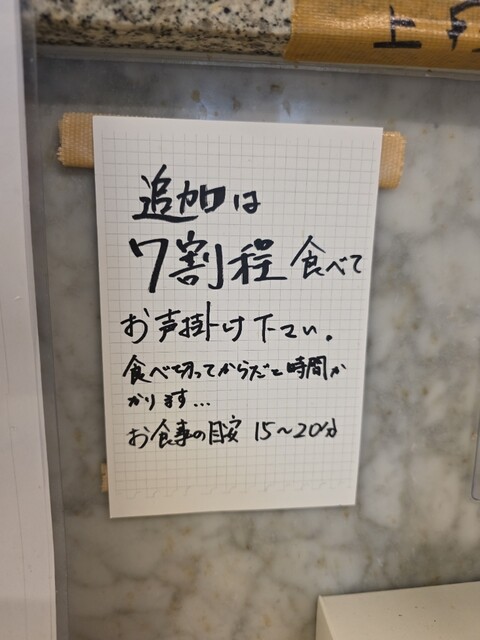 追加は
7割程食べて
お声掛け下さい。
食べ切ってからだと時間か
かります...
お食事の目安 15～20分